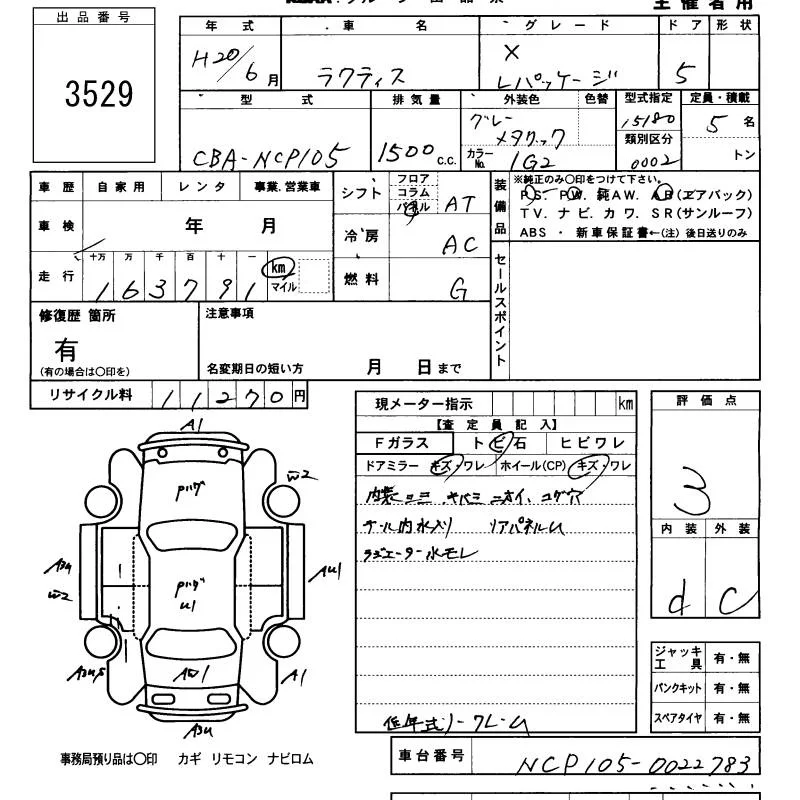 出品番号
3529
主催者用
年式 車名 グレード ドア 形状
H20/6月 ラクティス X Lパッケージ 5
型式 排気量 外装色 色替 型式指定 定員・積載
CBA-NCP105 1500 c.c. グレーメタリック 15180 5名
カラーNo. 1G2 類別区分 0002 トン
車歴 自家用 レンタ 事業.営業車
シフト フロア コラム パネル AT
装備品 ※純正のみ○印をつけて下さい。
PS. PW. 純AW. AB(エアバック)
TV. ナビ. カワ. SR(サンルーフ)
ABS ・ 新車保証書←(注) 後日送りのみ
車検 年 月
冷房 AC
走行 十万 万 千 百 十 一
163791 km マイル
燃料 G
セールスポイント
修復歴 箇所
有
(有の場合は○印を)
注意事項
名変期日の短い方 月 日まで
リサイクル料 11270円
現メーター指示 km
【査定員記入】
Fガラス トビ石 ヒビワレ
ドアミラー キズ・ワレ ホイール(CP) キズ・ワレ
内装ヨゴミ キバミ ニオイ、コゲ穴
リアパネルU
ラジエーター水モレ
評価点
3
内装 外装
d C
A1
W2
Pハゲ
A3U
W2
AU1
Pハゲ
U1
AW1
A1
A3U
ジャッキ工具 有・無
パンクキット 有・無
スペアタイヤ 有・無
低年式ノークレーム
事務局預り品は○印 カギ リモコン ナビロム
車台番号 NCP105-0022783